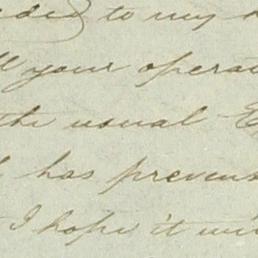 to my
your opera
the usual E
has preven
I hope it wi